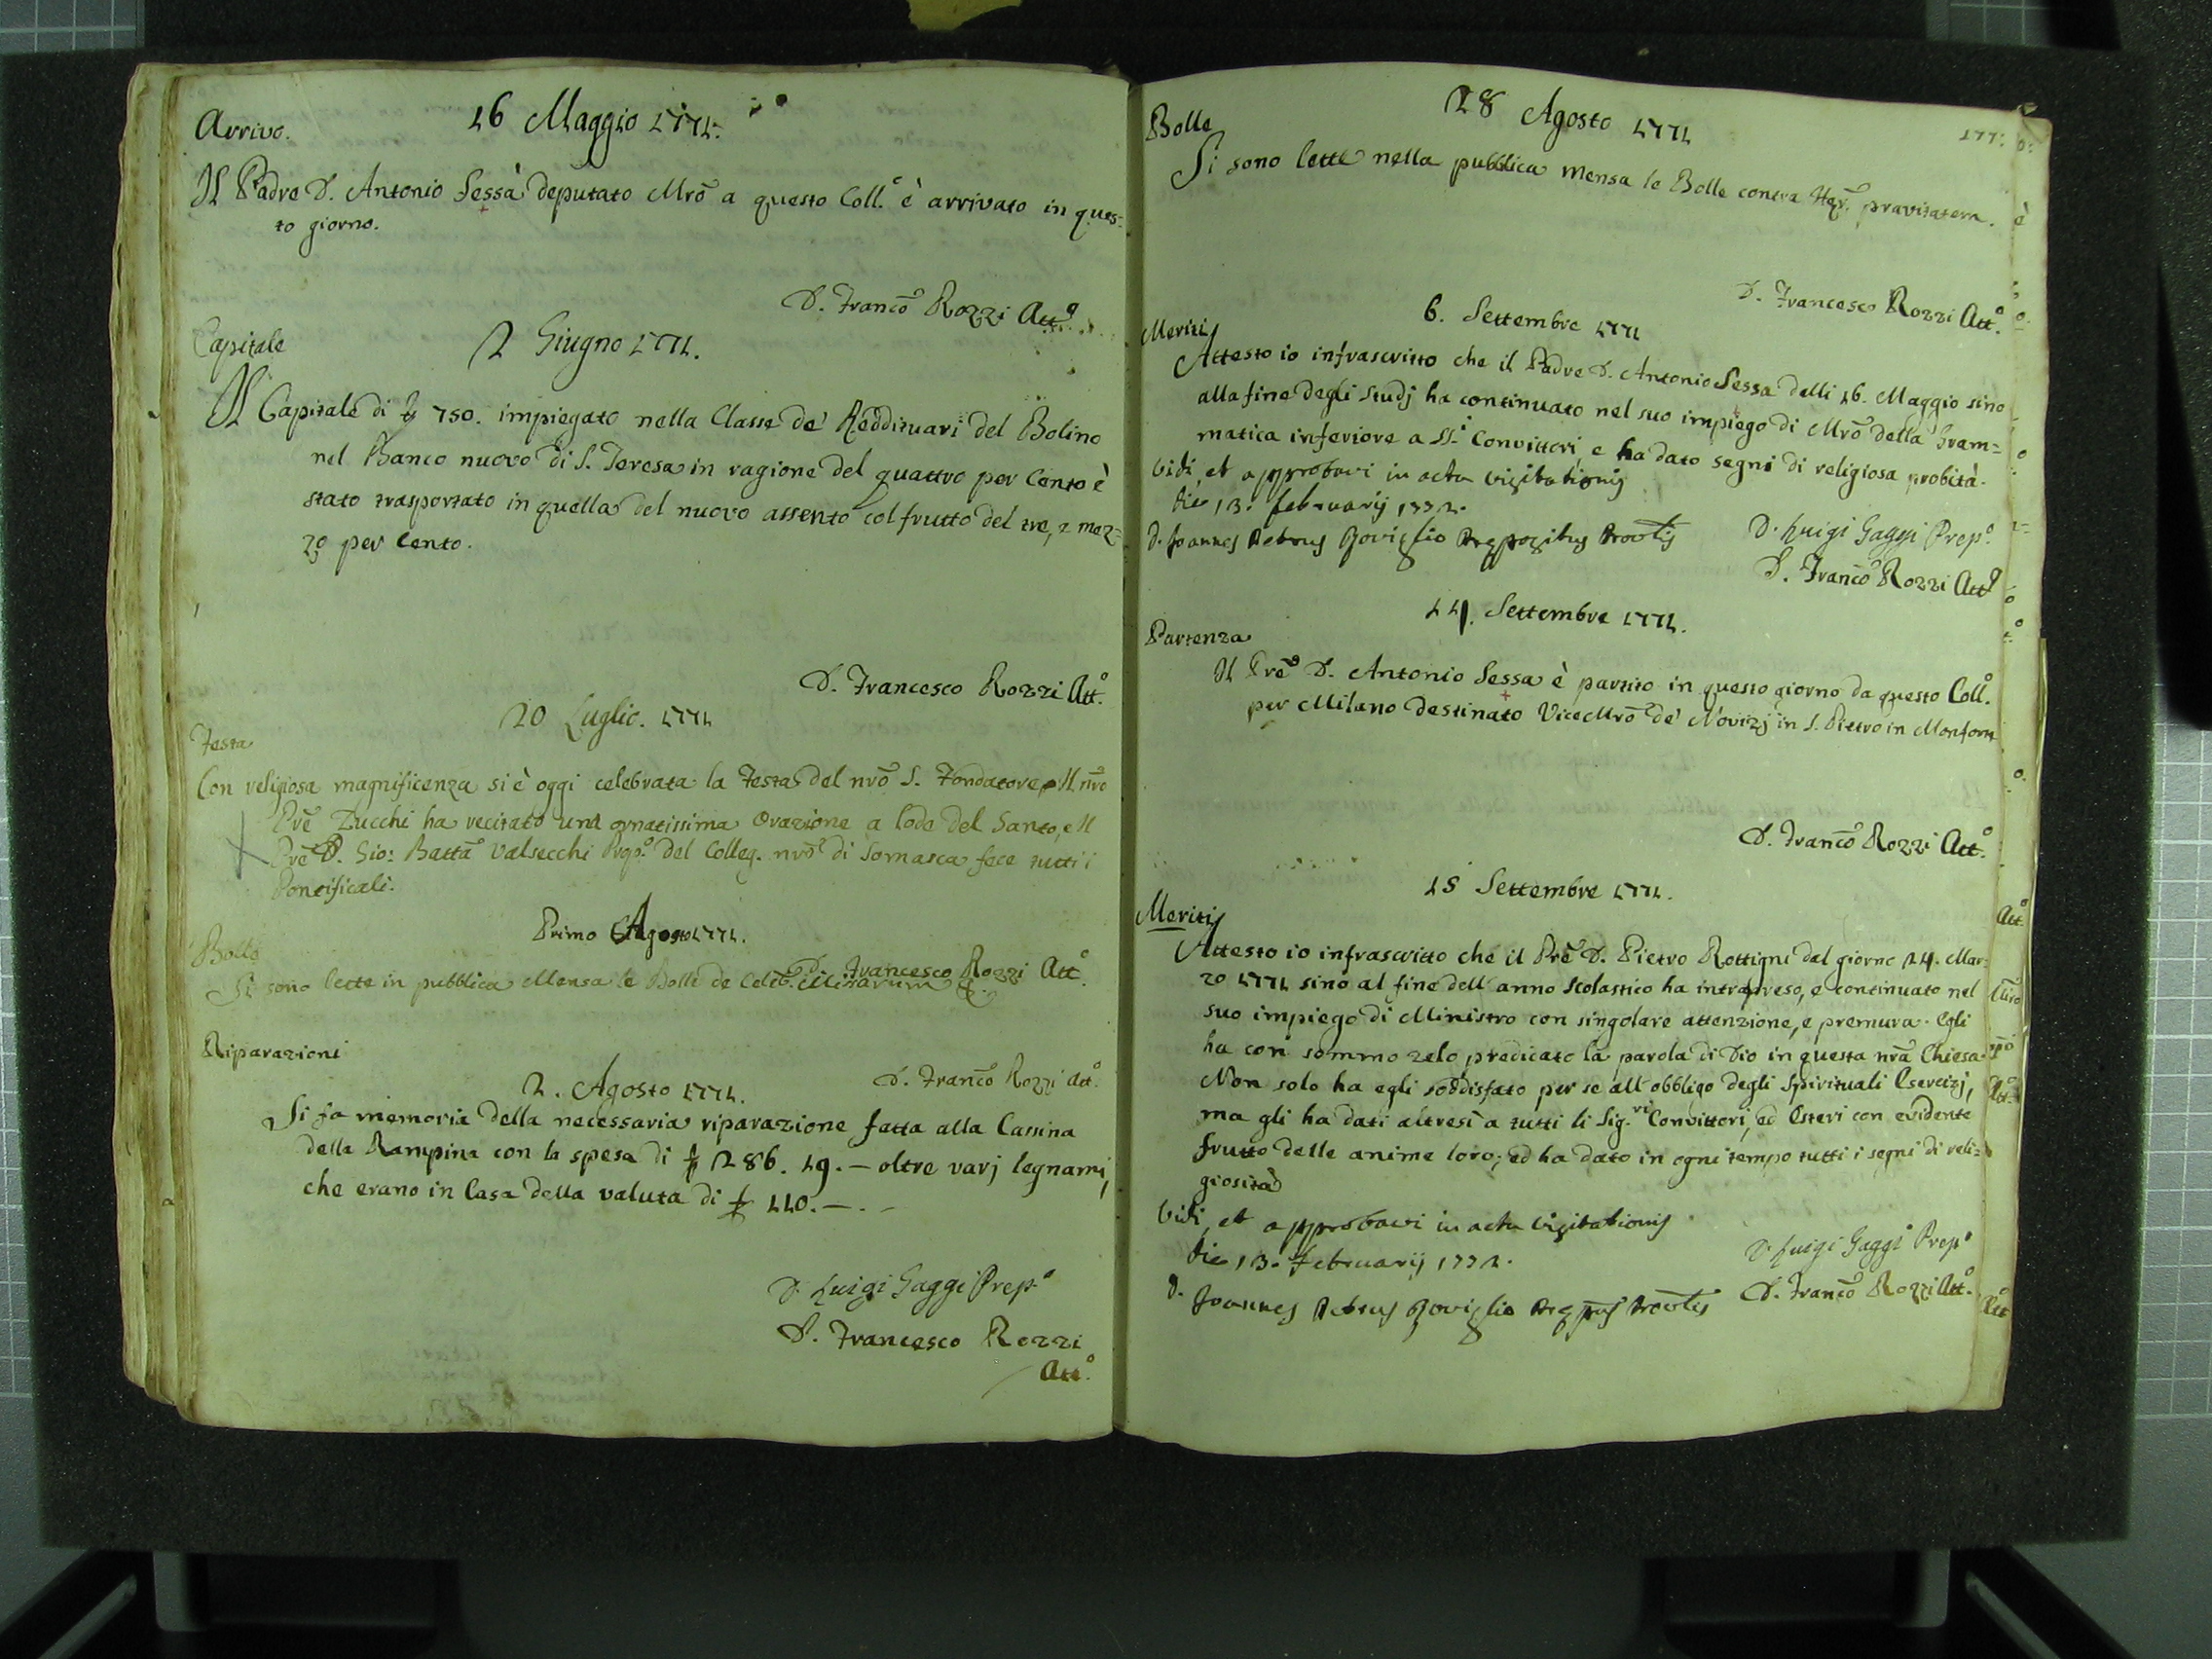 Arrivo.
16 Maggio 1771.
Il Padre D. Antonio Sessa deputato Mrõ a questo Coll.º è arrivato in ques-
to giorno.
D. Francõ Rozzi Att.º
Capitale
2 Giugno 1771.
Il Capitale di 750. impiegato nella Classe de' Reddituari del Bolino
nel Banco nuovo di S. Teresa in ragione del quattro per Cento è
stato trasportato in quella del nuovo assento col frutto del tre, e mez-
zo per Cento.
D. Francesco Rozzi Att.º
20 Luglio. 1771
Festa
Con religiosa magnificenza si è oggi celebrata la Festa del nrõ S. Fondatore. Il nrõ
Prẽ Zucchi ha recitato una ornatissima Orazione a lode del Santo, e Il
Prẽ D. Gio: Battã Valsecchi Prep.º del Colleg. nrõ di Somasca fece tutti i
Pontificali.
Primo Agosto 1771.
D. Francesco Rozzi Att.º
Bolle
Si sono lette in pubblica Mensa le Bolle de Celeb. Missarum &.
Riparazioni
D. Francõ Rozzi Att.º
2. Agosto 1771.
Si fa memoria della necessaria riparazione fatta alla Cassina
della Rampina con la spesa di 286. 19. — oltre varj legnami,
che erano in Casa della valuta di 110. — . -
D. Luigi Gaggi Prep.º
D. Francesco Rozzi
Att.º
28 Agosto 1771
Bolle
Si sono lette nella pubblica mensa le Bolle contra Hqr. pravitatem.
D. Francesco Rozzi Att.º
6. Settembre 1771
Meriti
Attesto io infrascritto che il Padre D. Antonio Sessa dalli 16. Maggio sino
alla fine degli Studj ha continuato nel suo impiego di Mrõ della Gram=
matica inferiore a SS.i Convittori, e ha dato segni di religiosa probità.
Vidi, et approbavi in actu visitationis
die 13. februarij 1772.
D. Joannes Petrus Roviglio Prepositus Provlis
D. Luigi Gaggi Prep.º
D. Francõ Rozzi Att.º
11. Settembre 1771.
Partenza
Il Prẽ D. Antonio Sessa è partito in questo giorno da questo Coll.º
per Milano destinato ViceMrõ de' Novizj in S. Pietro in Monforte
D. Francõ Rozzi Att.º
15 Settembre 1771.
Meriti
Attesto io infrascritto che il Prẽ D. Pietro Rottigni dal giorno 24. Mar=
zo 1771 sino al fine dell' anno Scolastico ha intrapreso, e continuato nel
suo impiego di Ministro con singolare attenzione, e premura. Egli
ha con sommo zelo predicato la parola di Dio in questa nrã Chiesa.
Non solo ha egli soddisfato per se all'obbligo degli Spirituali Esercizj,
ma gli ha dati altresì a tutti li Sig.ri Convittori, ed Esteri con evidente
frutto delle anime loro; ed ha dato in ogni tempo tutti i segni di reli=
giosità
Vidi, et approbavi in actu visitationis
die 13. Februarij 1772.
D. Joannes Petrus Roviglio Preptus Provlis
D. Luigi Gaggi Prep.º
D. Francõ Rozzi Att.º